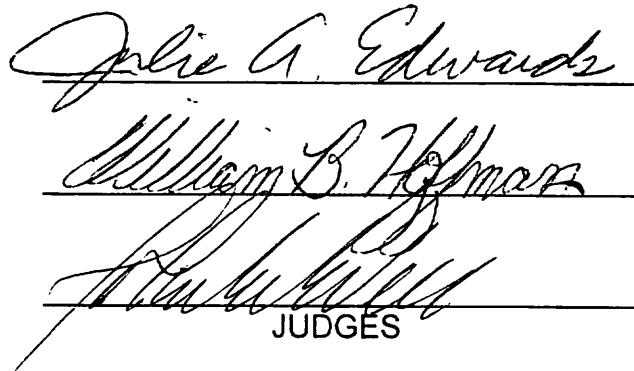 Julie A. Edwards
William B. Hoffman
JUDGES